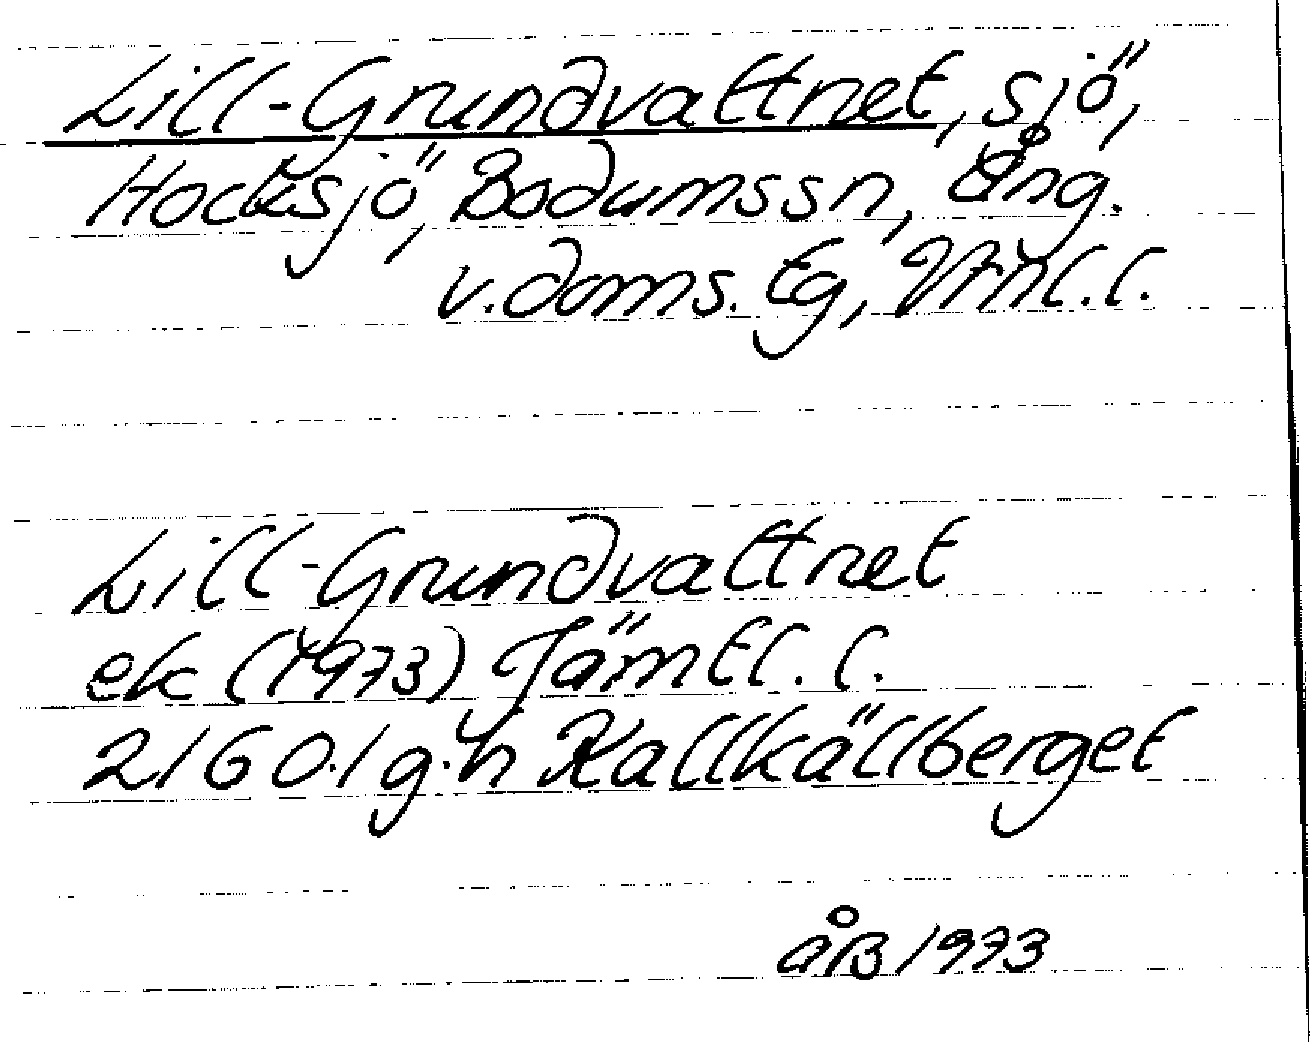 Lill-Grundvattnet, sjö,
Hocksjö, Bodumssn, Ång.
v. doms. Eg, Vrnl. l.
Lill-Grundvattnet
ek (1973) Jämtl. l.
2160.1 g.h Kallkällberget
åB 1973